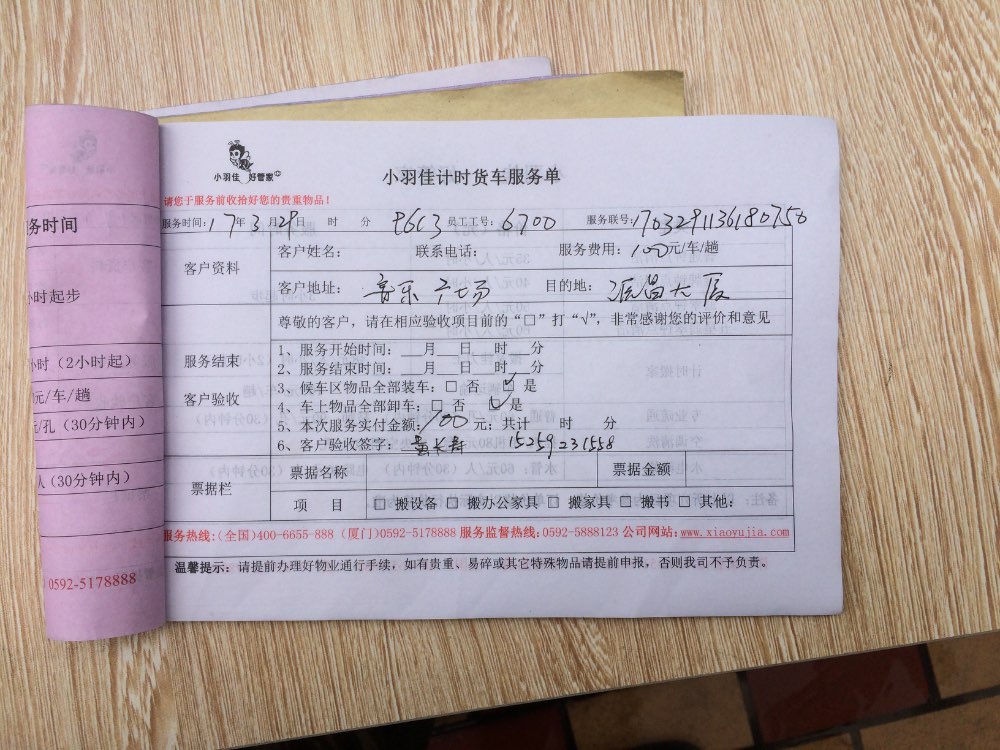 小羽佳 好管家
小羽佳计时货车服务单
请您于服务前收拾好您的贵重物品！
服务时间：17年3月29日 时 分 员工工号：6700 服务联号：1703291136180750
客户资料
客户姓名： 联系电话： 服务费用：100元/车/趟
客户地址：音乐广场 目的地：大厦
尊敬的客户，请在相应验收项目前的“□”打“√”，非常感谢您的评价和意见
服务结束
客户验收
1、服务开始时间：___月___日___时___分
2、服务结束时间：___月___日___时___分
3、候车区物品全部装车：□ 否 ☑ 是
4、车上物品全部卸车：□ 否 ☑ 是
5、本次服务实付金额：100元；共计 时 分
6、客户验收签字： 15259231558
票据栏
票据名称 票据金额
项 目 □ 搬设备 □ 搬办公家具 □ 搬家具 □ 搬书 □ 其他：
服务热线:(全国)400-6655-888 (厦门)0592-5178888 服务监督热线:0592-5888123 公司网站:www.xiaoyujia.com
温馨提示：请提前办理好物业通行手续，如有贵重、易碎或其它特殊物品请提前申报，否则我司不予负责。
务时间
小时起步
小时（2小时起）
元/车/趟
元/孔（30分钟内）
人（30分钟内）
0592-5178888